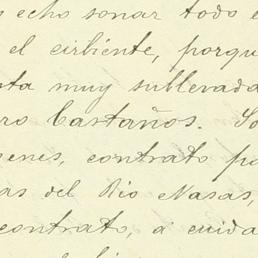 s echo sonar todo e
el cirbiente, porqu
sta muy sublevada
ro Castaños. So
enes, contrato po
as del Rio Nasas,
contrato, a cuida